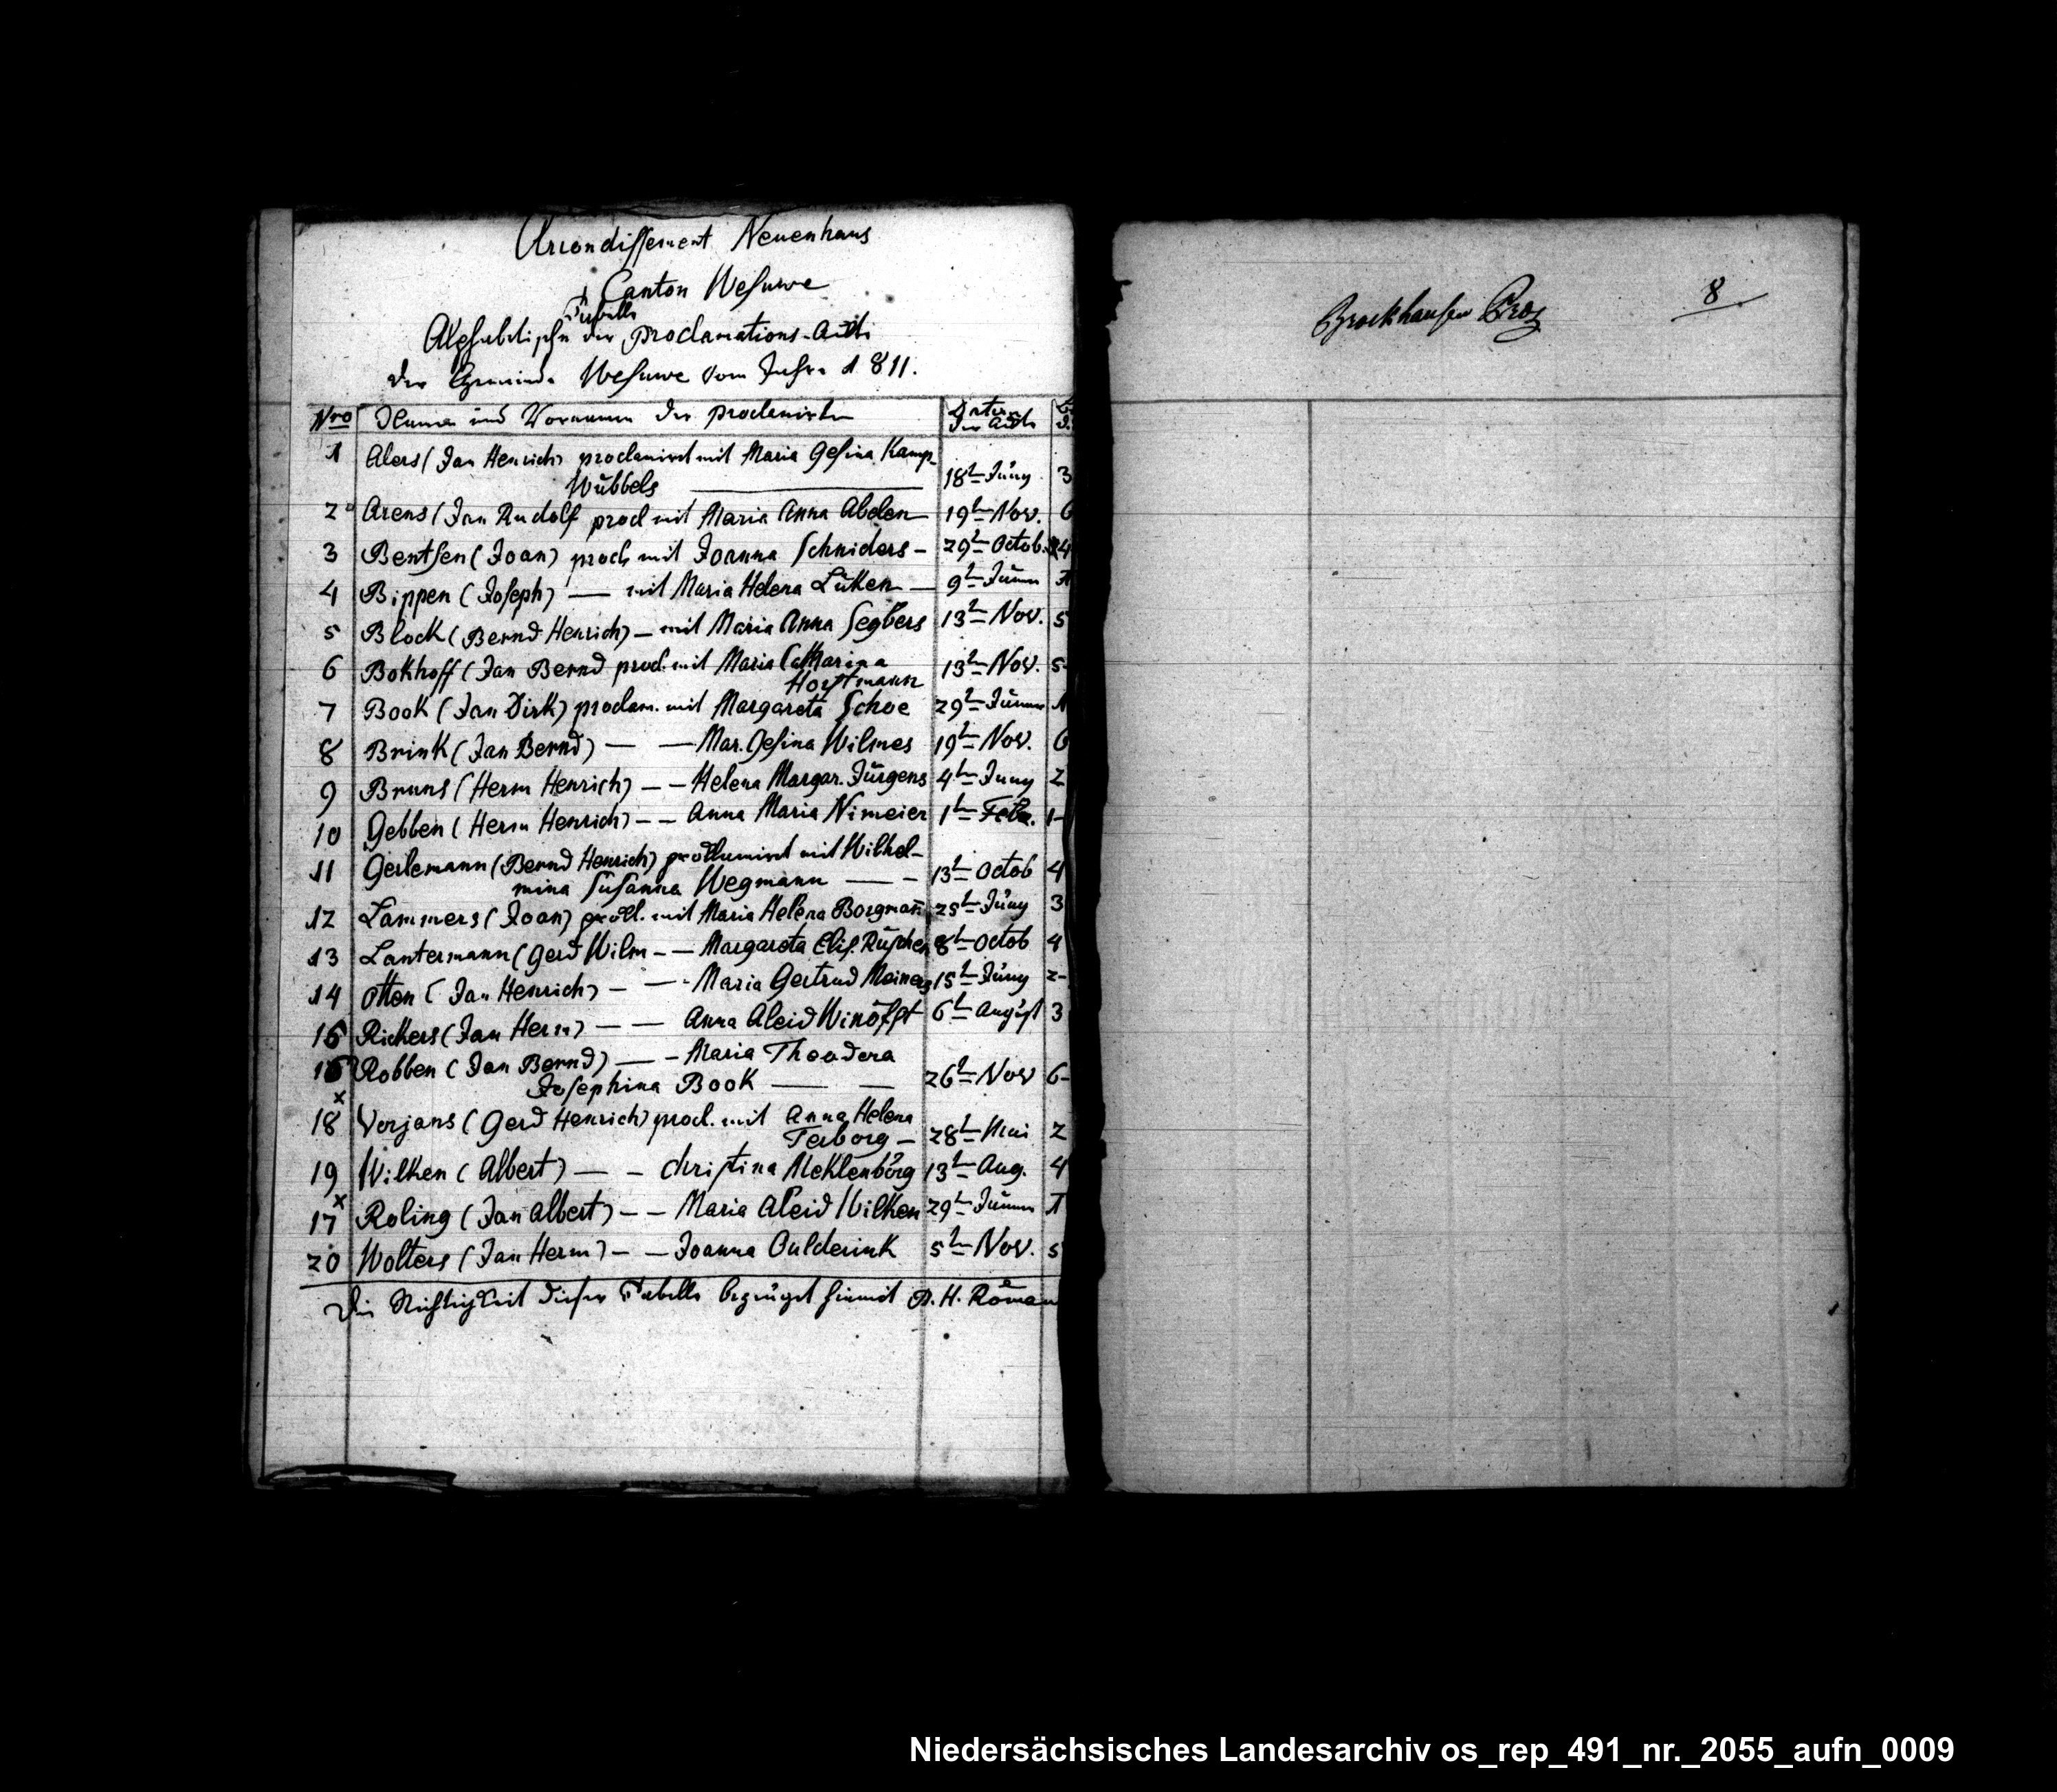 Arrondissement Neuenhaus
Canton Wesuwe
Tabelle
Alphabetische der Proclamations-Acte
der Gemeinde Wesuwe vom Jahre 1811.
Nro Name und Vornamen der proclamirten Datum der Acte
1 Alers (Jan Henrich) proclamirt mit Maria Gesina Kamp-
Wübbels 18t Juny 3
2 Arens (Jan Rudolf procl mit Maria Anna Abelen 19t Nov. 6
3 Bentsen (Joan) procl. mit Joanna Schniders - 29t Octob. 4
4 Bippen (Joseph) — mit Maria Helena Lüken — 9t Jänn 1
5 Block (Bernd Henrich) — mit Maria Anna Segbers 13t Nov. 5
6 Bokhoff (Jan Bernd procl. mit Maria Catharina
Horstmann 13t Nov. 5-
7 Book (Jan Dirk) proclam. mit Margareta Schoe 29t Jänner 1
8 Brink (Jan Bernd) — — Mar. Gesina Wilmes 19t Nov. 6
9 Bruns (Herm Henrich) — — Helena Margar. Jürgens 4t Juny 2
10 Gebben (Herm Henrich) — — Anna Maria Nimeier 1t Febr. 1-
11 Gerlemann (Bernd Henrich) proclamirt mit Wilhel-
mina Susanna Wegmann — - 13t Octob 4
12 Lammers (Joan) procl. mit Maria Helena Borgmañ 25t Juny 3
13 Lantermann (Gerd Wilm — — Margareta Elis. Rüschen 8t Octob 4
14 Otten (Jan Henrich) — — Maria Gertrud Meiners 15t Juny 2-
15 Rickers (Jan Herm) — — Anna Aleid Winöfft 6t August 3
16 Robben (Jan Bernd) — - Maria Theodera
Josephina Book — — 26t Nov 6-
x
18 Verjans (Gerd Henrich) procl. mit Anna Helena
Terborg - 28t Mai 2
19 Wilken (Albert) — - Christina Meklenborg 13t Aug. 4
x
17 Roling (Jan Albert) — — Maria Aleid Wilken 29t Jänner 1
20 Wolters (Jan Herm) — — Joanna Oulderink 5t Nov. 5
Die Richtigkeit dieser Tabelle bezeuget hiemit A. H. Röman
Brockhausen 8
Niedersächsisches Landesarchiv os_rep_491_nr._2055_aufn_0009